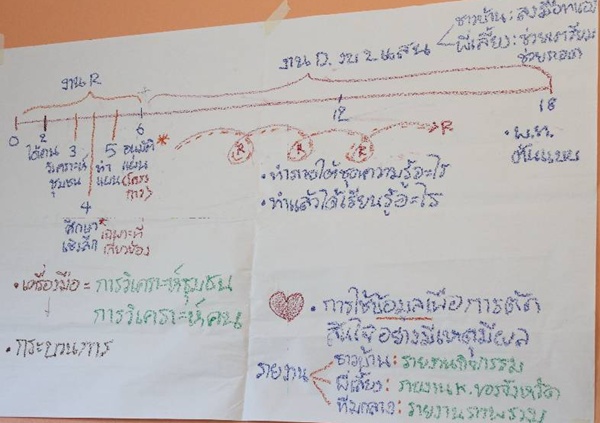 ชาวบ้าน : ลงมือทำเอง
งาน D. งบ 2 แสน
พี่เลี้ยง : ช่วยเตรียม
ช่วยถอด
งาน R
0 2 3 4 5 6 12 18
ได้คน
วิเคราะห์
ชุมชน
ทำ
แผน
อนุมัติ
แผน
(โครง
การ)
ศึกษา
เชิงลึก
เฉพาะที่
เกี่ยวข้อง
R R R R
• พ.ท.
ต้นแบบ
• ทำภายใต้ชุดความรู้อะไร
• ทำแล้วได้เรียนรู้อะไร
• เครื่องมือ = การวิเคราะห์ชุมชน
การวิเคราะห์คน
• กระบวนการ
• การใช้ข้อมูลเพื่อการตัด
สินใจอย่างมีเหตุมีผล
รายงาน
ชาวบ้าน : รายงานกิจกรรม
พี่เลี้ยง : รายงาน ของจังหวัด
ทีมกลาง : รายงานภาพรวม